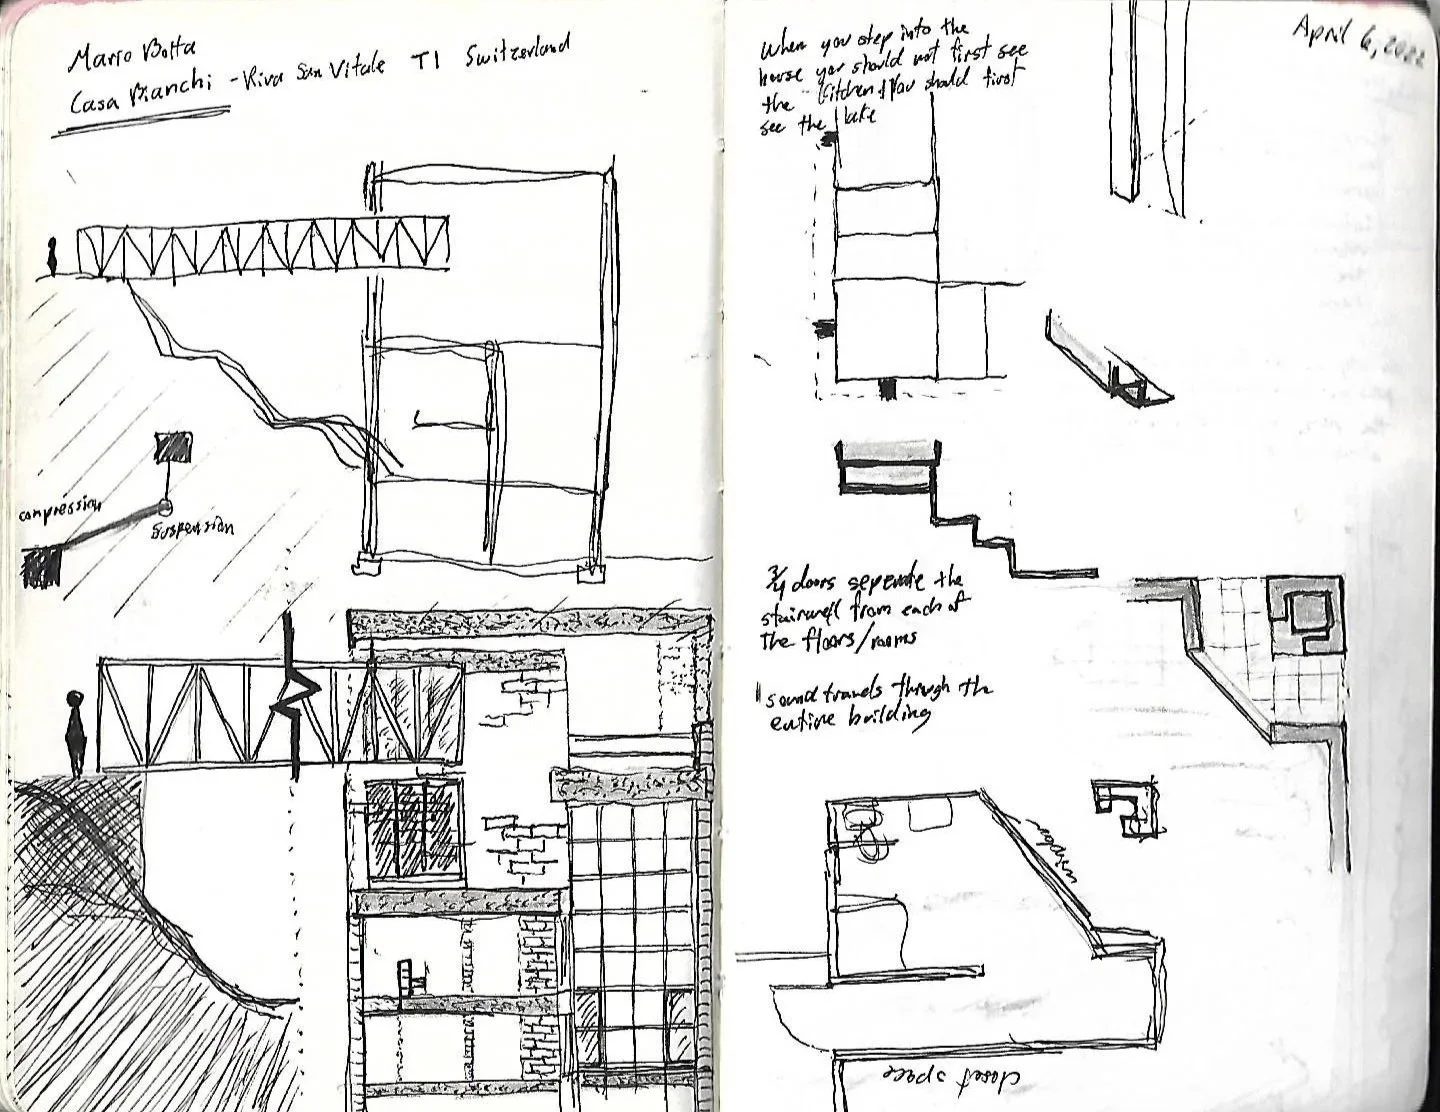 Mario Botta
Casa Bianchi - Riva San Vitale TI Switzerland
compression
suspension
April 6, 2022
When you step into the
house you should not first see
the kitchen. You should first
see the lake
3/4 doors seperate the
stairwell from each of
the floors/rooms
sound travels through the
entire building
window
closet space